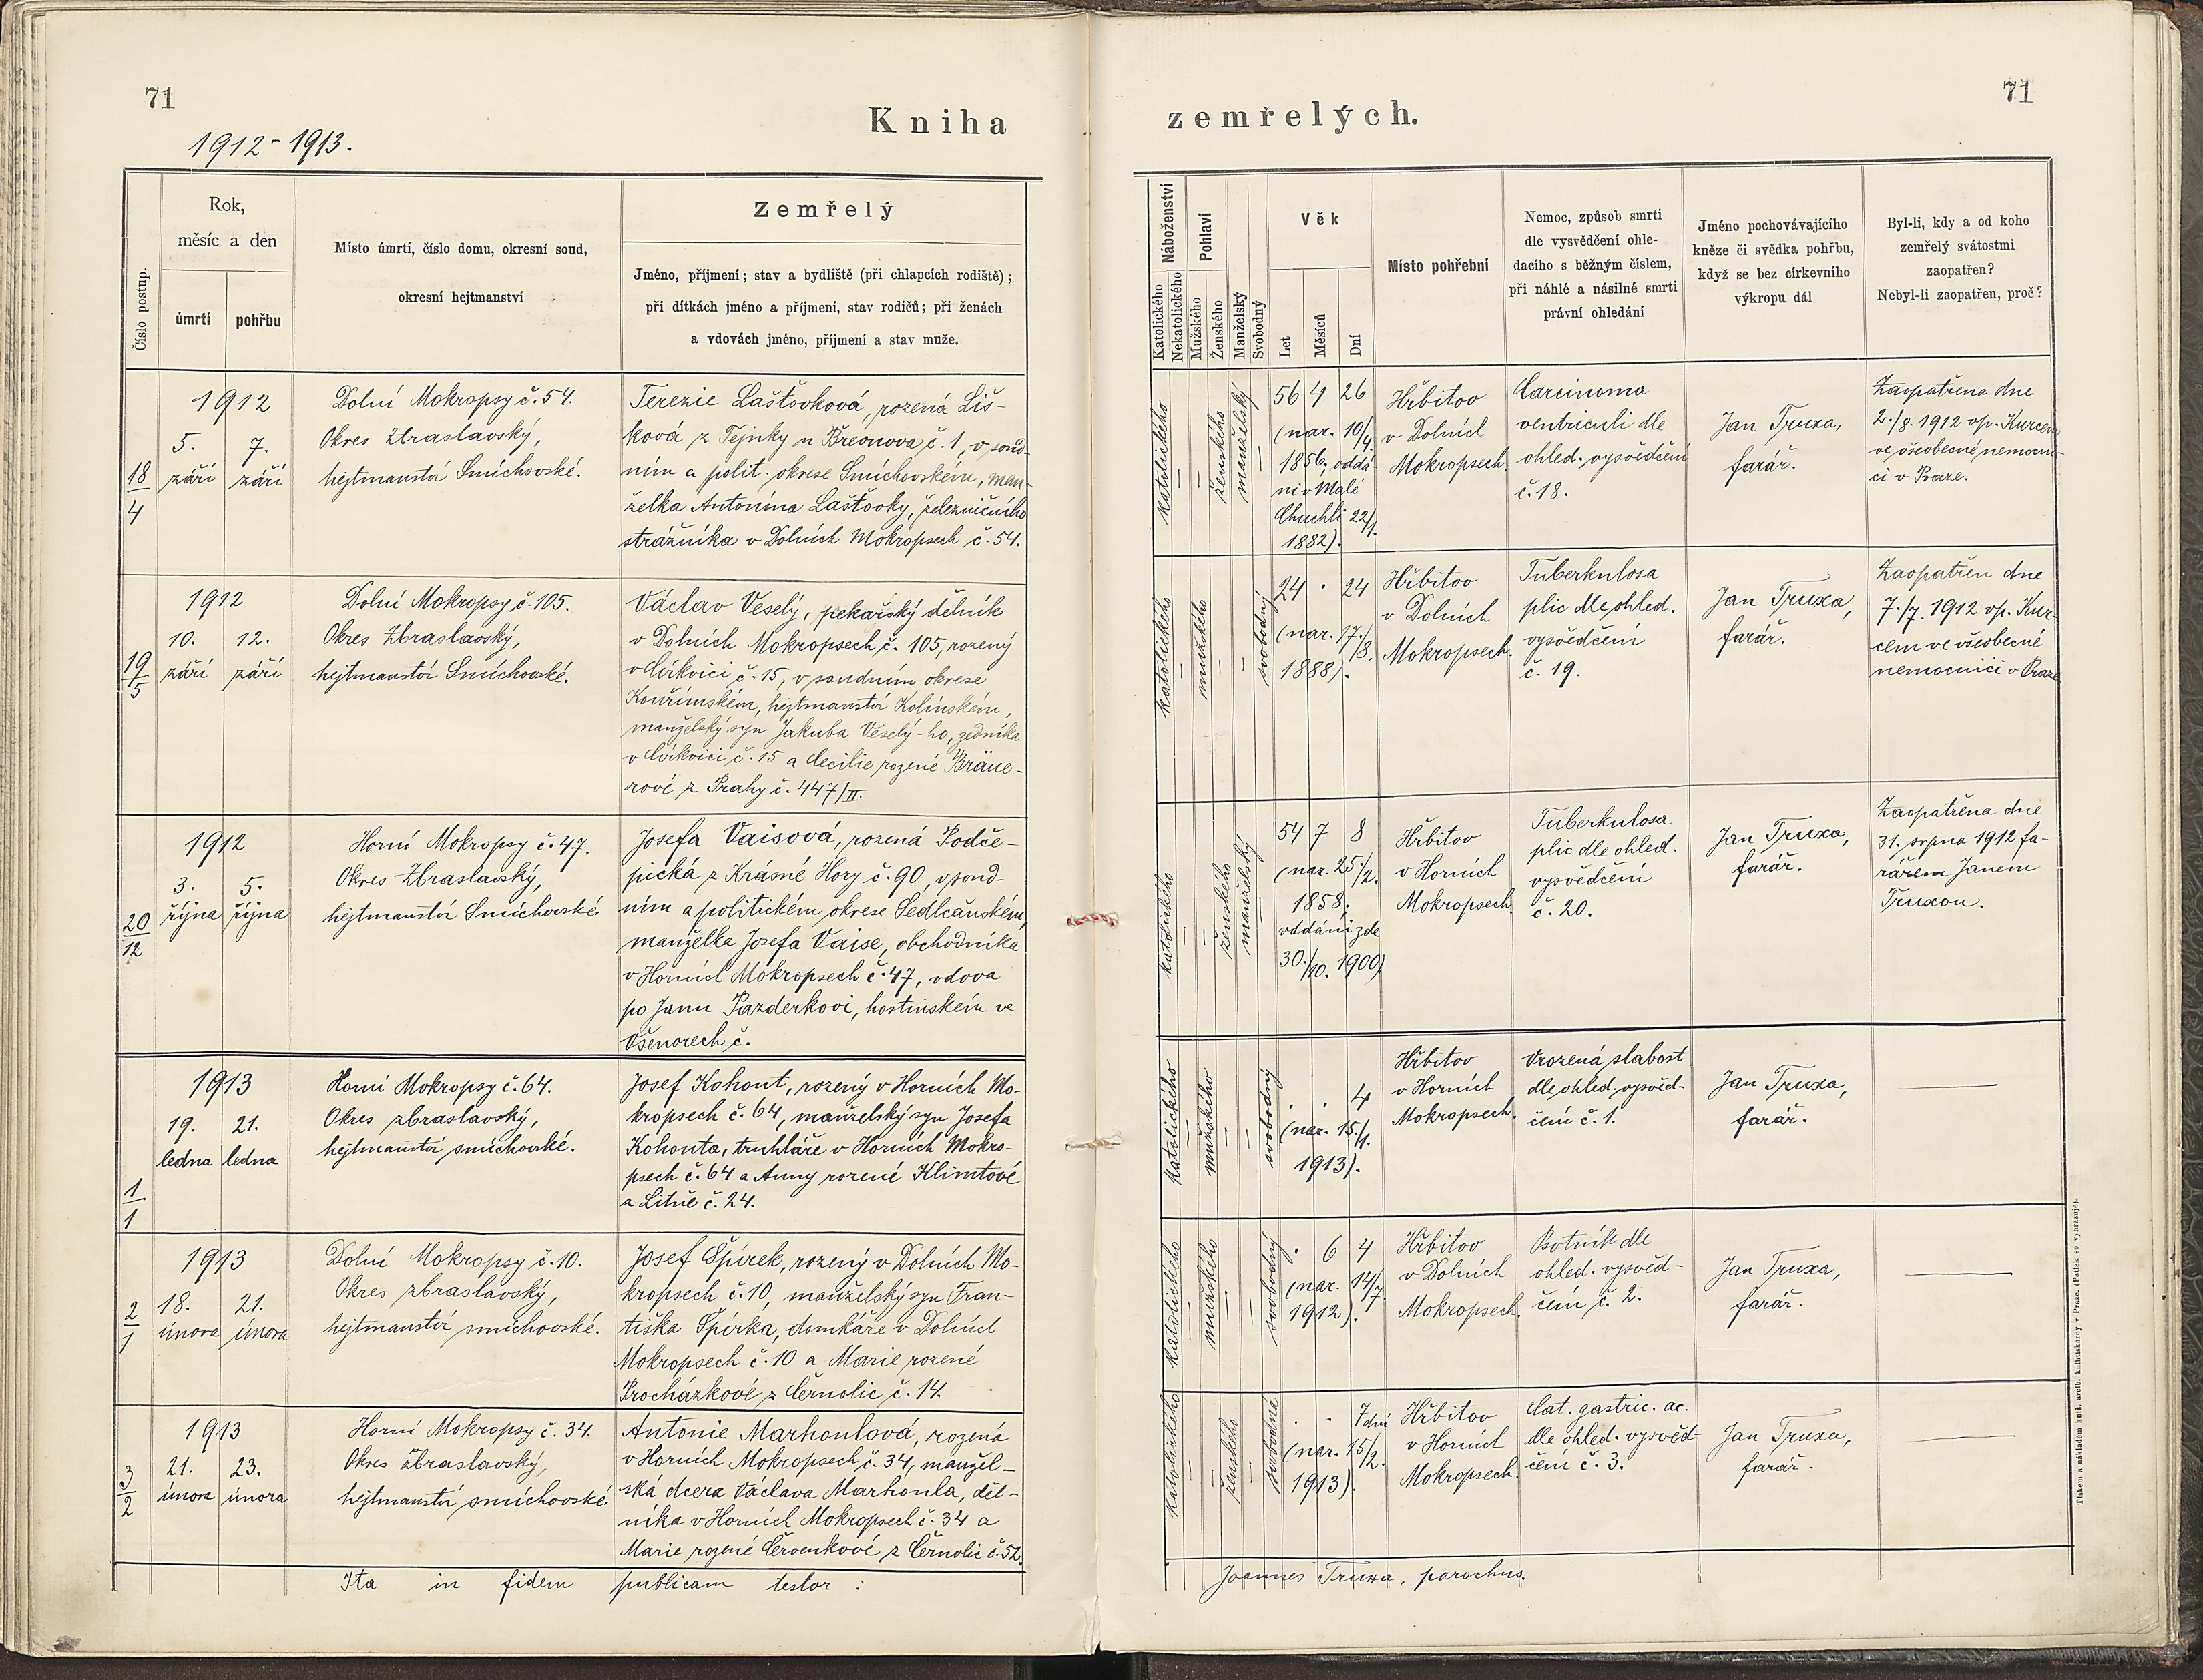 71
71
Kniha
zemřelých.
1912-1913.
Číslo postup.
Rok,
měsíc a den
úmrtí
pohřbu
Místo úmrtí, číslo domu, okresní soud,
okresní hejtmanství
Zemřelý
Jméno, příjmení; stav a bydliště (při chlapcích rodiště);
při dítkách jméno a příjmení, stav rodičů; při ženách
a vdovách jméno, příjmení a stav muže.
Náboženství
Katolického
Nekatolického
Pohlaví
Mužského
Ženského
Manželský
Svobodný
Věk
Let
Měsíců
Dní
Místo pohřební
Nemoc, způsob smrti
dle vysvědčení ohle-
dacího s běžným číslem,
při náhlé a násilné smrti
právní ohledání
Jméno pochovávajícího
kněze či svědka pohřbu,
když se bez církevního
výkropu dál
Byl-li, kdy a od koho
zemřelý svátostmi
zaopatřen?
Nebyl-li zaopatřen, proč?
18/4
1912
5. září
7. září
Dolní Mokropsy č. 54.
Okres Zbraslavský,
hejtmanství Smíchovské.
Terezie Laštovková, rozená Liš-
ková z Tejnky u Břevnova č. 1, v soud-
ním a polit. okrese Smíchovském, man-
želka Antonína Laštovky, železničního
strážníka v Dolních Mokropsech č. 54.
katolického
ženského
manželský
56 4 26
(nar. 10/4.
1856; oddá-
ni v Malé
Chuchli 22/1.
1882).
Hřbitov
v Dolních
Mokropsech.
Carcinoma
ventriculi dle
ohled. vysvědčení
č. 18.
Jan Truxa,
farář.
Zaopatřena dne
2./8. 1912 vp. Kurcem
ve všeobecné nemocni-
ci v Praze.
19/5
1912
10. září
12. září
Dolní Mokropsy č. 105.
Okres Zbraslavský,
hejtmanství Smíchovské.
Václav Veselý, pekařský dělník
v Dolních Mokropsech č. 105, rozený
v Církvici č. 15, v soudním okrese
Kouřimském, hejtmanství Kolínském,
manželský syn Jakuba Veselý-ho, zedníka
v Církvici č. 15 a Cecilie rozené Bräue-
rové z Prahy č. 447/II.
katolického
mužského
svobodný
24 . 24
(nar. 17./8.
1888).
Hřbitov
v Dolních
Mokropsech.
Tuberkulosa
plic dle ohled.
vysvědčení
č. 19.
Jan Truxa,
farář.
Zaopatřen dne
7./7. 1912 vp. Kur-
cem ve všeobecné
nemocnici v Praze
20/12
1912
3. října
5. října
Horní Mokropsy č. 47.
Okres Zbraslavský,
hejtmanství Smíchovské
Josefa Vaisová, rozená Podče-
pická z Krásné Hory č. 90, v soud-
ním a politickém okrese Sedlčanském,
manželka Josefa Vaise, obchodníka
v Horních Mokropsech č. 47, vdova
po Janu Pazderkovi, hostinském ve
Všenorech č.
katolického
ženského
manželský
54 7 8
(nar. 25./2.
1858;
oddáni zde
30./10. 1900)
Hřbitov
v Horních
Mokropsech.
Tuberkulosa
plic dle ohled.
vysvědčení
č. 20.
Jan Truxa,
farář.
Zaopatřena dne
31. srpna 1912 fa-
rářem Janem
Truxou.
1/1
1913
19. ledna
21. ledna
Horní Mokropsy č. 64.
Okres zbraslavský,
hejtmanství smíchovské.
Josef Kohout, rozený v Horních Mo-
kropsech č. 64, manželský syn Josefa
Kohouta, truhláře v Horních Mokro-
psech č. 64 a Anny rozené Klimtové
z Litně č. 24.
katolického
mužského
svobodný
. . 4
(nar. 15./1.
1913).
Hřbitov
v Horních
Mokropsech.
Vrozená slabost
dle ohled. vysvěd-
čení č. 1.
Jan Truxa,
farář.
2/1
1913
18. února
21. února
Dolní Mokropsy č. 10.
Okres zbraslavský,
hejtmanství smíchovské.
Josef Špírek, rozený v Dolních Mo-
kropsech č. 10, manželský syn Fran-
tiška Špírka, domkáře v Dolních
Mokropsech č. 10 a Marie rozené
Procházkové z Černolic č. 14.
katolického
mužského
svobodný
. 6 4
(nar. 14/7.
1912).
Hřbitov
v Dolních
Mokropsech.
Psotník dle
ohled. vysvěd-
čení č. 2.
Jan Truxa,
farář.
3/2
1913
21. února
23. února
Horní Mokropsy č. 34.
Okres zbraslavský,
hejtmanství smíchovské
Antonie Marhoulová, rozená
v Horních Mokropsech č. 34, manžel-
ská dcera Václava Marhoula, děl-
níka v Horních Mokropsech č. 34 a
Marie rozené Červenkové z Černolic č. 52.
katolického
ženského
svobodná
. . 7 dní
(nar. 15/2.
1913).
Hřbitov
v Horních
Mokropsech.
Cat. gastric. ac.
dle ohled. vysvěd-
čení č. 3.
Jan Truxa,
farář.
Ita in fidem publicam testor:
Joannes Truxa, parochus.
Tiskem a nákladem kníž. arcib. knihtiskárny v Praze. (Patisk se vyhrazuje).